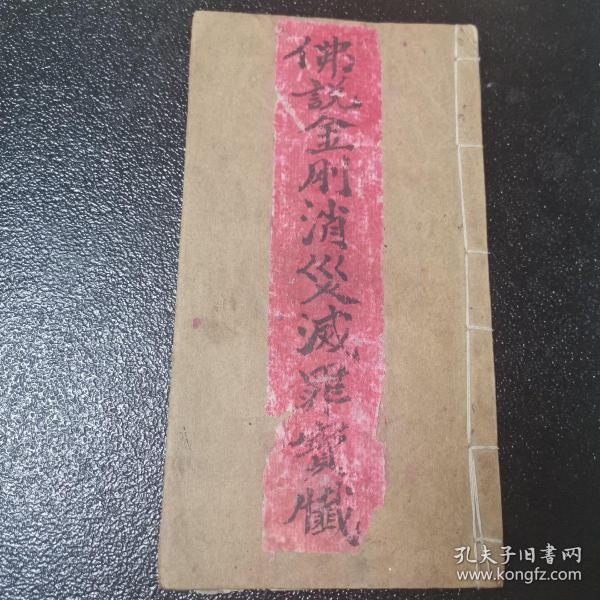 佛説金刚消災滅罪寳懺
孔夫子旧書网
www.kongfz.com